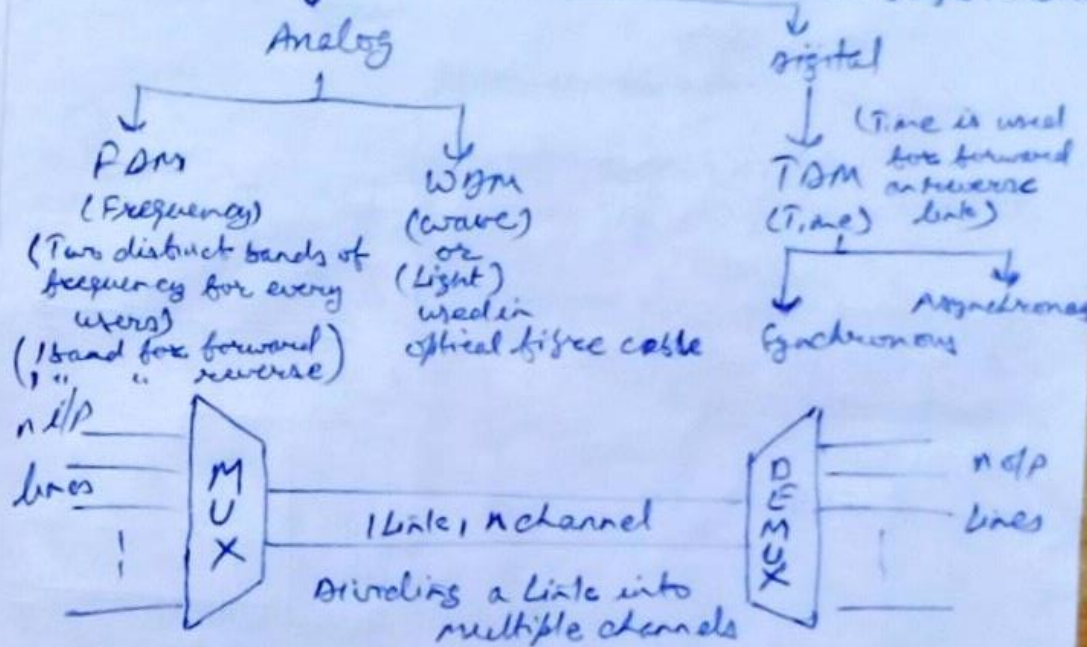 Analog
Digital
FDM
(Frequency)
(Two distinct bands of
frequency for every
users)
(1 band for forward)
1 " " reverse)
WDM
(wave)
or
(Light)
used in
optical fibre cable
(Time is used
for forward
TDM
reverse
(Time)
link)
Synchronous
Asynchronous
n i/p
lines
MUX
1 Link, n channel
Dividing a Link into
multiple channels
DEMUX
n o/p
Lines